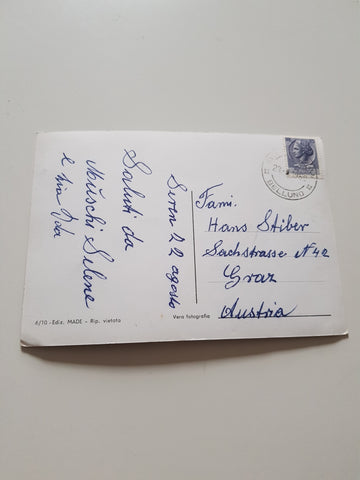 Seren 22 agosto
Saluti da
Muschi Selene
e zia Ida
Fami.
Hans Stiber
Sachstrasse N 42
Graz
Austria
BELLUNO
6/10 - Ediz. MADE - Rip. vietata
Vera fotografia